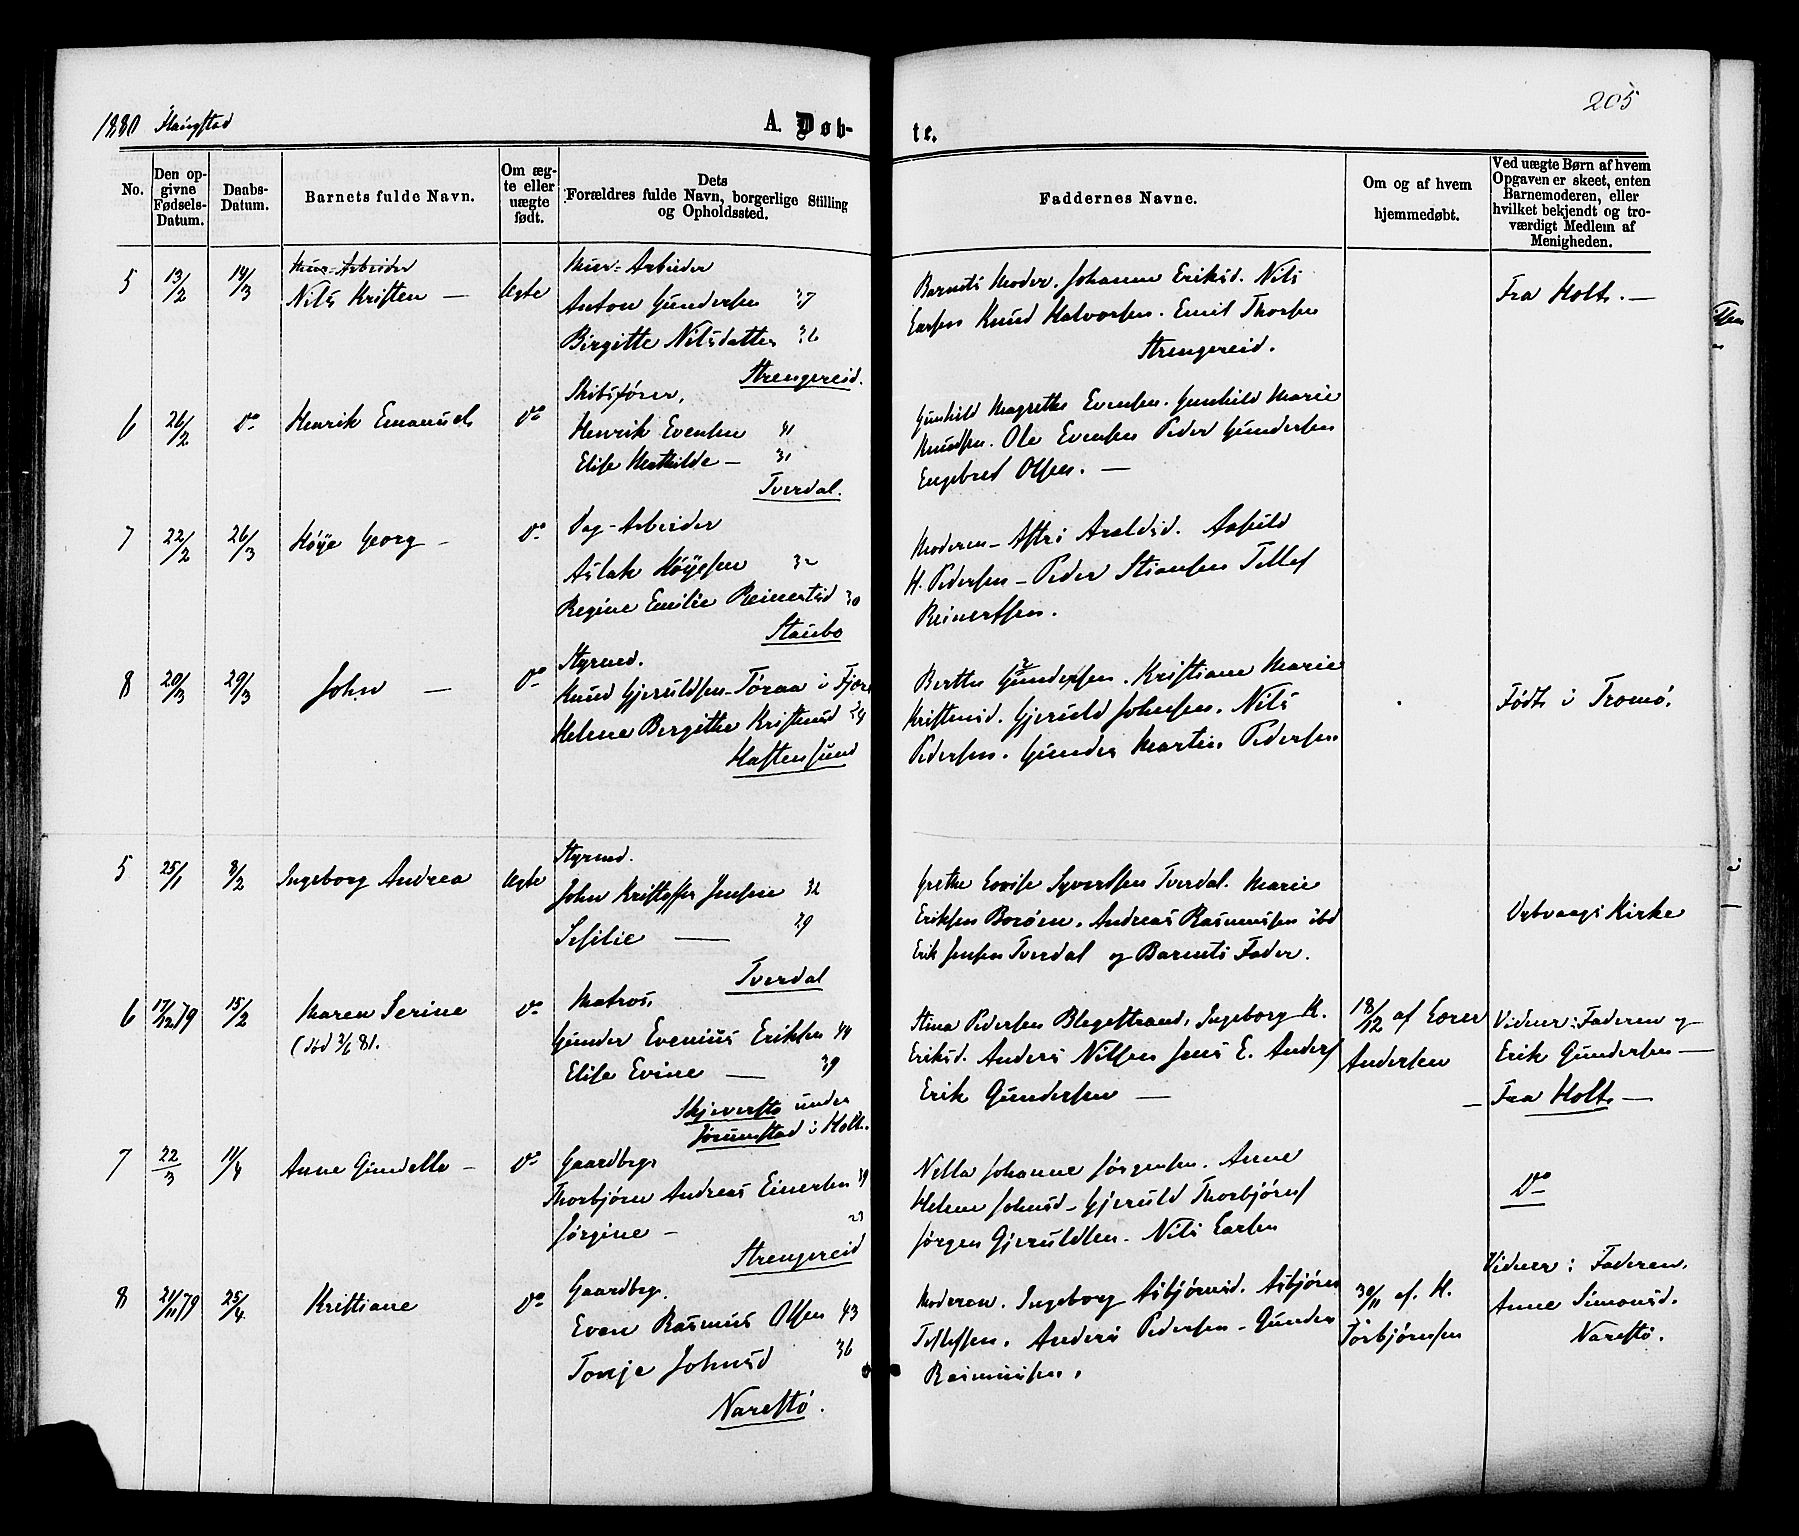 205
1880 Flangstad
A. Døb-
te.
No.
Den op-
givne
Fødsels-
Datum.
Daabs-
Datum.
Barnets fulde Navn.
Om æg-
te eller
uægte
født.
Dets
Forældres fulde Navn, borgerlige Stilling
og Opholdssted.
Faddernes Navne.
Om og af hvem
hjemmedøbt.
Ved uægte Børn af hvem
Opgaven er skeet, enten
Barnemoderen, eller
hvilket bekjendt og tro-
værdigt Medlem af
Menigheden.
5 13/2 14/3 Nils Kristen — Ægte
Muur-Arbeider
Muur-Arbeider
Anton Gundersen 37
Birgitte Nilsdatter 36
Strengereid.
Barnets Moder. Johanne Eriksd. Nils
Larsen Knud Halvorsen. Emil Thorsen
Strengereid.
Fra Holt. —
6 26/2 do Henrik Emanuel do
Skibsfører,
Henrik Evensen 41
Elise Mathilde — 31
Tverdal.
Gunhild Magrethe Evensen. Gunhild Marie
Knudsen. Ole Evensen Peder Gundersen
Engebret Olsen. —
7 22/2 26/3 Høye Georg - do
Dag-Arbeider
Aslak Høyesen 32
Regine Emilie Reinertsd 30
Staubo
Moderen - Astri Araldsd. Aasild
H. Pedersen - Peder Stiansen Tellef
Reinertsen.
8 20/3 29/3 John — do
Styrmd.
Knud Gjeruldsen - Tøraa i Fjære
Helene Bergithe Kristensd 24
Hastensund
Berthe Gundersen. Kristiane Marie
Kristensd. Gjeruld Johnsen. Nils
Pedersen. Gunder Martin Pedersen
Født i Tromø.
5 25/1 8/2 Ingeborg Andrea Ægte
Styrmd.
John Kristoffer Jensen 32
Sesilie — 29
Tverdal
Grethe Lovise Syvertsen Tverdal. Marie
Eriksen Borøen. Andreas Rasmussen ibd
Erik Jensen Tverdal og Barnets Fader.
Dybvaags Kirke
6 17/12 79 15/2 Maren Serine do
(død 3/6 81.
Matros,
Gunder Evenius Eriksen 44
Elise Evine — 39
Skjeversto under
Jorunstad i Holt.
Stina Pedersen Blegestrand, Ingeborg K.
Eriksd. Anders Nilsen Jens E. Anders
Erik Gundersen —
18/12 af Lærer
Andersen
Vidner: Faderen og
Erik Gundersen —
Fra Holt —
7 22/3 11/4 Anne Gundelle - do
Gaardbgr
Thorbjørn Andreas Einersen
Jørgine - 23
Strengereid
Nella Johanne Jørgensen. Anne
Helene Johnsd - Gjeruld Thorbjørns
Jørgen Gjeruldsen. Nils Larsen
do
8 21/11 79 25/4 Kristiane do
Gaardbgr.
Even Rasmus Olsen 43
Tonje Johnsd 36
Narestø.
Moderen. Ingeborg Asbjørnsd. Asbjørn
Tellefsen. Anders Pedersen - Gunder
Rasmussen.
30/11 af. H.
Torbjørnsen
Vidner: Faderen.
Anne Simonsd.
Narestø.